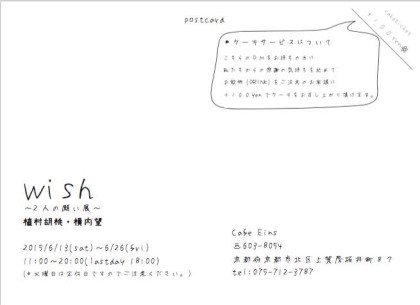 postcard
cake ticket
+100yen
*ケーキサービスについて
こちらのDMをお持ちの方に
私たちからの感謝の気持ちを込めて
お飲物(DRINK)をご注文のお客様に
+100yenでケーキをお召し上がり頂けます。
wish
〜2人の願い展〜
植村胡桃・横内望
2015/6/13(sat)〜6/26(fri)
11:00〜20:00(lastday 18:00)
(*火曜日は定休日ですのでご注意ください。)
Cafe Eins
〒603-8054
京都府京都市北区上賀茂桜井町87
tel:075-712-3787